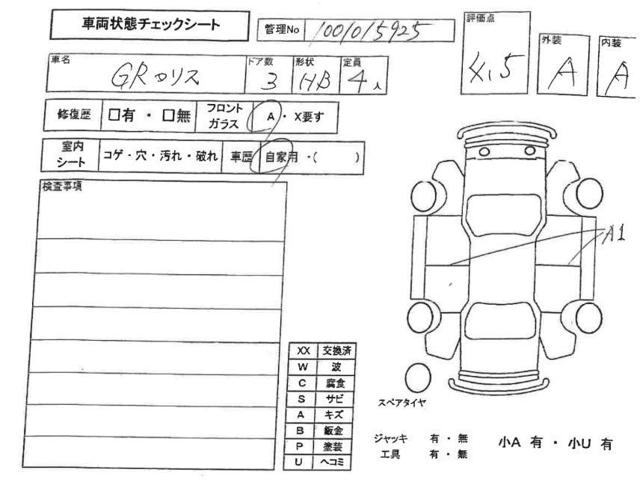 車両状態チェックシート
管理No 1001015925
評価点 4.5
外装 A
内装 A
車名 GRヤリス
ドア数 3
形状 HB
定員 4人
修復歴 □有・□無
フロントガラス A・X要す
室内シート コゲ・穴・汚れ・破れ
車歴 自家用・( )
検査事項
A1
XX 交換済
W 波
C 腐食
S サビ
A キズ
B 鈑金
P 塗装
U ヘコミ
スペアタイヤ
ジャッキ 有・無
工具 有・無
小A 有・小U 有